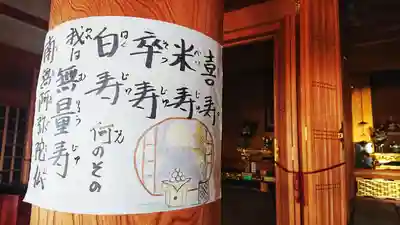 喜寿
米寿
卒寿
白寿
何のその
我は無量寿
南無阿弥陀仏